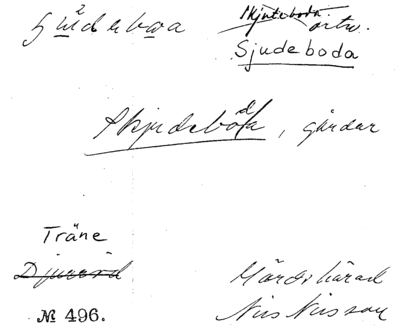 Skjuteboda ortn.
Sjudeboda
Skjudeboda, gårdar
Träne
Djurröd
Gärds härad
№ 496.
Nils Nilsson